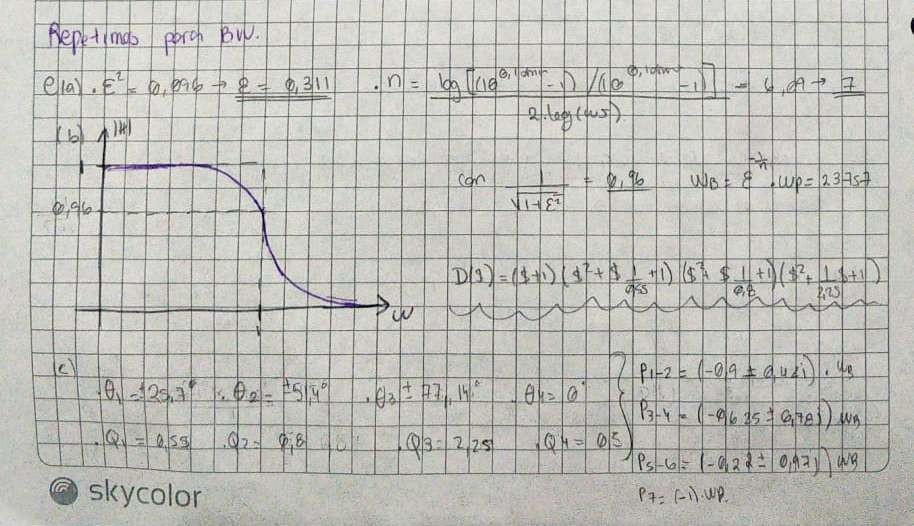 Repetimos para BW.
e(a) . ε² = 0,096 → ε = 0,311 . n = log[(10^0,1αmin -1) / (10^0,1αmax -1)] / 2.log(ws) = 6,09 → 7
(b) |H|
1
0,96
con 1/√(1+ε²) = 0,96 WB = ε^-1/n . wp = 23757
D($) = ($+1) ($² + $ 1/0,55 + 1) ($² + $ 1/0,8 + 1) ($² + 1/2,25 $ + 1)
w
(c)
. θ1 = ±25,7° . θ2 = ±51,4° . θ3 ± 77,14° . θ4 = 0°
. Q1 = 0,55 . Q2 = 0,8 . Q3 = 2,25 . Q4 = 0,5
P1-2 = (-0,9 ± 0,43j) . WB
P3-4 = (-0,625 ± 0,78j) WB
P5-6 = (-0,22 ± 0,97j) WB
P7 = (-1) . WB
skycolor